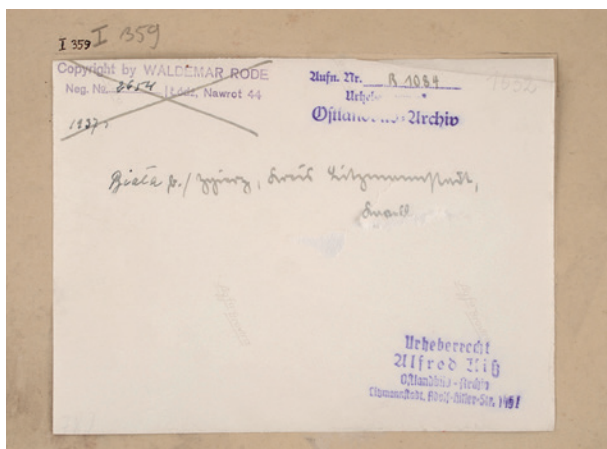 I 359 I 359
Copyright by WALDEMAR RODE
Neg. No. 2654 Łódź, Nawrot 44
1937
Aufn. Nr. B 1084
Urheber
Ostlandbild-Archiv
1552
Biała b./ Zgierz, Kreis Litzmannstadt,
Urheberrecht
Alfred Kiß
Ostlandbild-Archiv
Litzmannstadt, Adolf-Hitler-Str.